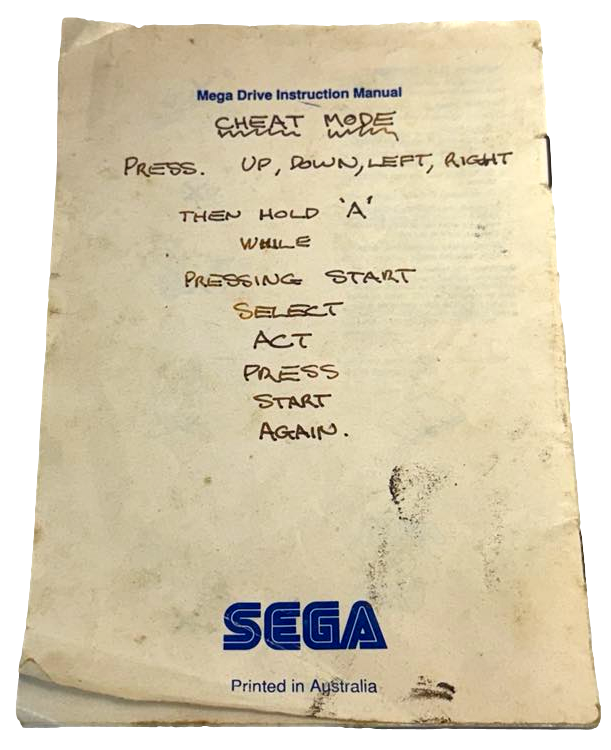 Mega Drive Instruction Manual
CHEAT MODE
PRESS. UP, DOWN, LEFT, RIGHT
THEN HOLD 'A'
WHILE
PRESSING START
SELECT
ACT
PRESS
START
AGAIN.
SEGA
Printed in Australia